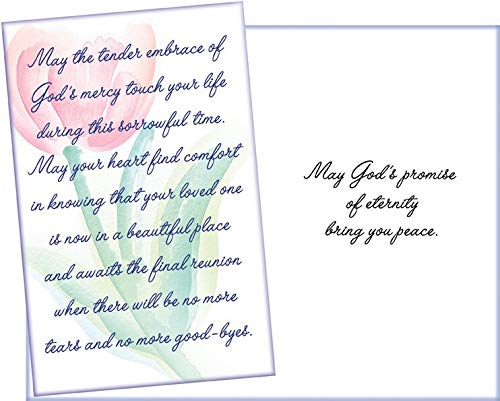 May the tender embrace of
God's mercy touch your life
during this sorrowful time.
May your heart find comfort
in knowing that your loved one
is now in a beautiful place
and awaits the final reunion
when there will be no more
tears and no more good-byes.
May God's promise
of eternity
bring you peace.